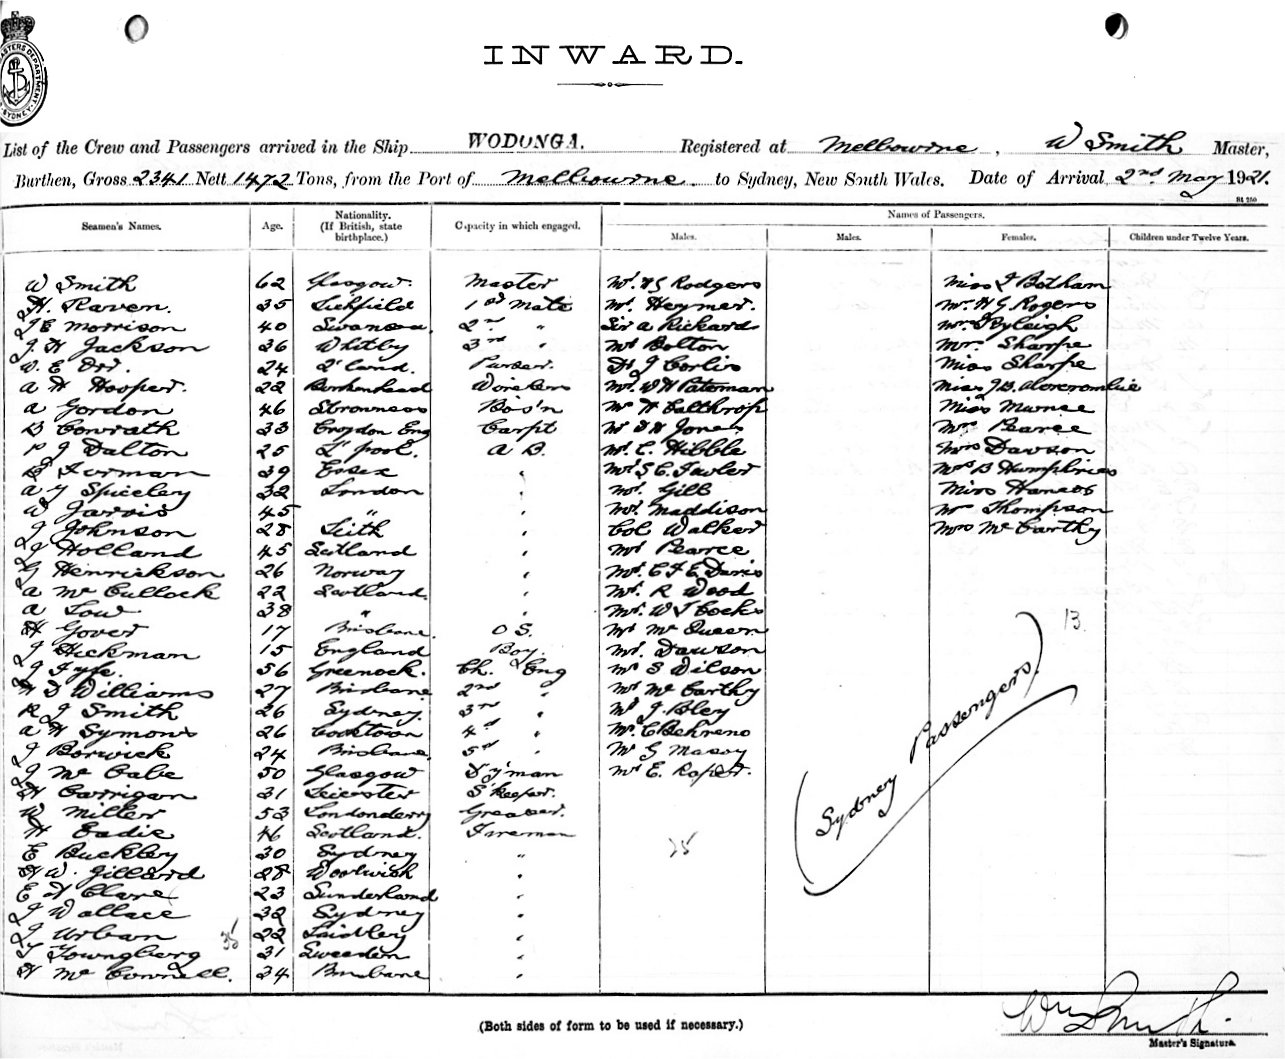 INWARD.
List of the Crew and Passengers arrived in the Ship WODONGA. Registered at Melbourne, W Smith Master,
Burthen, Gross 2341 Nett 1472 Tons, from the Port of Melbourne to Sydney, New South Wales. Date of Arrival, 2nd May 1921.
Names of Passengers.
Seamen's Names. Age. Nationality. (If British, state birthplace.) Capacity in which engaged. Males. Males. Females. Children under Twelve Years.
W Smith 62 Glasgow Master Mr. H G Rodgers Miss J Botham
H. Raven. 35 Lichfield 1st Mate Mr. Heymer. Mrs. H G Rogers
J E Morrison 40 Swansea 2nd " Sir A Rickard Mrs Ryleigh
J. H Jackson 36 Whitby 3rd " Mr Bolton Mrs. Sharpe
W. E Orr. 24 Q'land. Purser. Dr J Corlis Miss Sharpe
A H Hooper. 22 Birkenhead Wireless Mr. W H Pateman Miss J B. Abercrombie
A Gordon 46 Stromness Bos'n Mr H Calthrop Miss Munce
B Conrath 33 Croydon Eng Carpt W S H Jones Mrs Pearce
P J Dalton 25 L'pool. A B. Mr. C. Hibble Mrs Dawson
E Forman 39 Essex " Mr S C. Fowler Mrs B Humphries
A J Spiceley 32 London " Mr. Gill Miss Hancos
W Jarvis 45 " " Mr. Maddison Mr Thompson
J Johnson 28 Leith " Col Walker Mrs McCarthy
J Holland 45 Scotland " Mr Pearce
G Henrickson 26 Norway " Mr. C F E Davis
A McCullock 22 Scotland. " Mr. R Wood
A Low 38 " " Mr. W J Cocks
H Gover 17 Brisbane. O S. Mr McQueen 13
J Hickman 15 England Boy. Mr. Dawson
J Fyfe. 56 Greenock. Ch. Eng Mr S Wilson
H D Williams 27 Brisbane 2nd " Mr McCarthy
R J Smith 26 Sydney. 3rd " Mr J. Bley
A H Symons 26 Cooktown 4th " Mr. C Behrens
J Borwick 24 Brisbane. 5th " Mr G Massy
J McCabe 50 Glasgow D'y'man Mr E. Roper.
H Carrigan 31 Leicester S'keeper.
W Miller 53 Londonderry Greaser.
H Eadie 46 Scotland. Fireman
E Buckley 30 Sydney " 25
H W. Gillard 28 Woolwich "
E H Clare 23 Sunderland "
J Wallace 32 Sydney "
J Urban 22 Laidley "
35
T Youngberg 31 Sweeden "
H McConnell. 24 Brisbane "
(Sydney Passengers)
(Both sides of form to be used if necessary.)
Wm Smith.
Master's Signature.